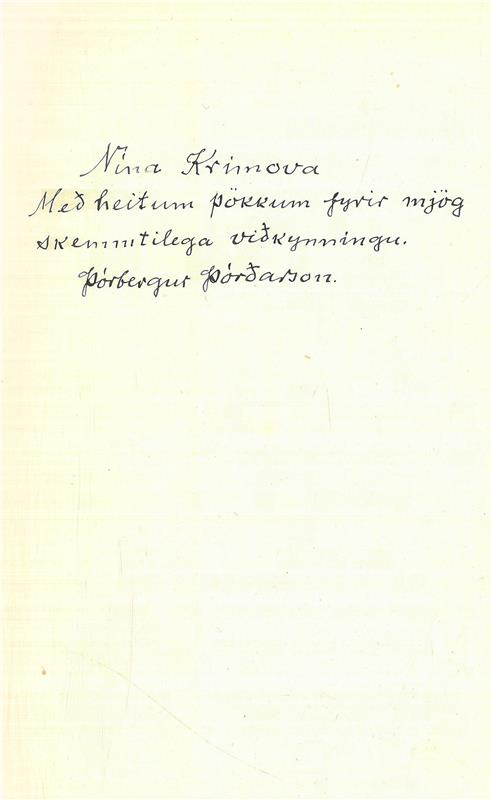 Nina Krimova
Með heitum þökkum fyrir mjög
skemmtilega viðkynningu.
Þórbergur Þórðarson.